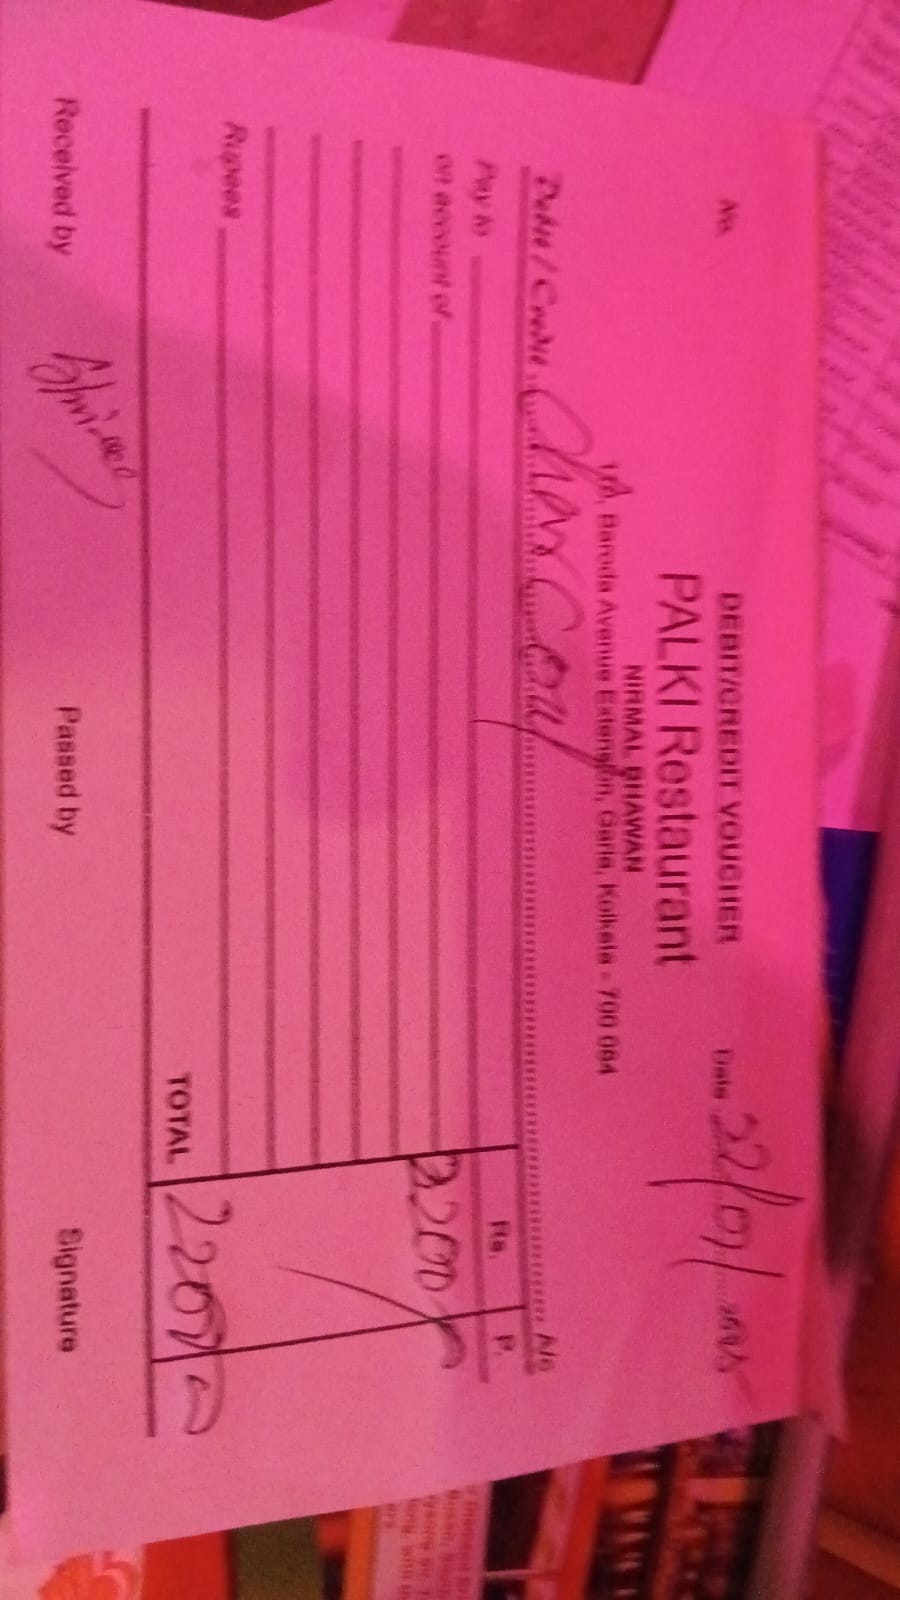 DEBIT/CREDIT VOUCHER
No. Date 22/01/
PALKI Restaurant
NIRMAL BHAWAN
1/A, Baroda Avenue Extension, Garia, Kolkata - 700 084
Debit / Credit A/c
Pay to Rs. P.
on account of 2200
Rupees
TOTAL 2200
Received by Passed by Signature